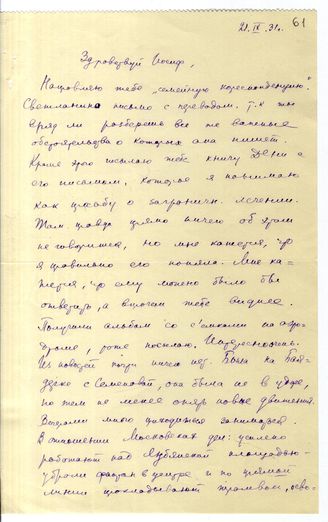 61
21.IX.31г.
Здравствуй Иосиф,
Направляю тебе "семейную корреспонденцию".
Светланино письмо с переводом, т.к. ты
вряд ли разберешь все те важные
обстоятельства о которых она пишет.
Кроме этого посылаю тебе книгу Дени с
его письмом, которое я понимаю
как просьбу о заграничн. лечении.
Там правда прямо ничего об этом
не говорится, но мне кажется, что
я правильно его поняла. Мне ка-
жется, что ему можно было бы
ответить, а впрочем тебе виднее.
Получили альбом со съемками на аэро-
дроме, тоже посылаю. Интересность.
Из новостей почти ничего нет. Была на
с Семеновой, она была не в ударе,
но тем не менее опять новые движения.
Вечерами много приходится заниматься.
В отношении Московских дел: усиленно
работают над Лубянской площадью
убрали фонтан в центре и по прямой
линии прокладывают трамваи, осво-